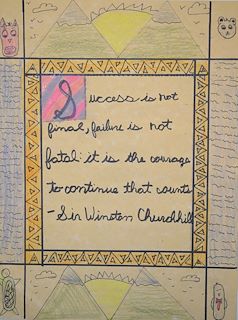 Success is not
final, failure is not
fatal: it is the courage
to continue that counts
- Sir Winston Churchhill